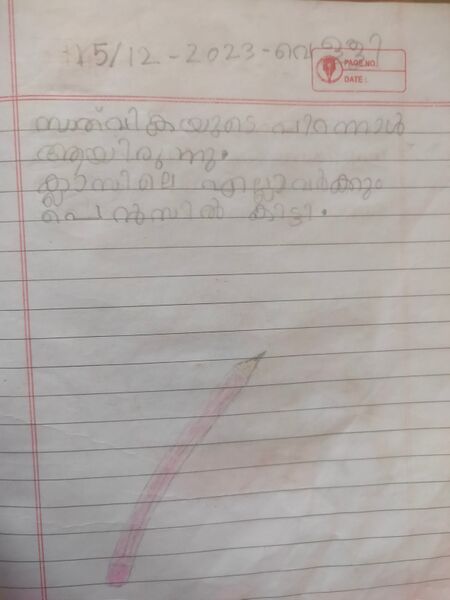 15/12-2023-വെള്ളി
PAGE NO.
DATE :
സാത്വികയുടെ പിറന്നാൾ
ആയിരുന്നു.
ക്ലാസിലെ എല്ലാവർക്കും
പെൻസിൽ കിട്ടി.